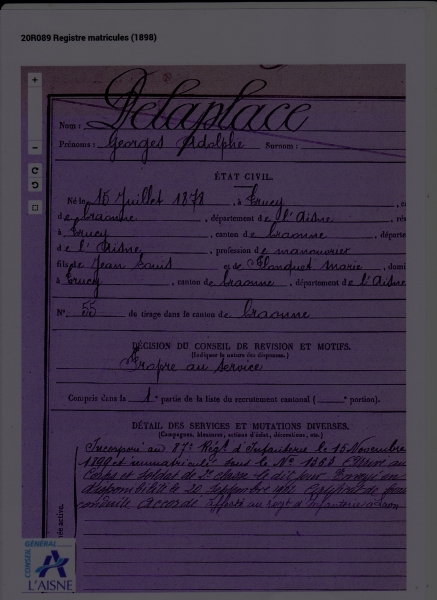 20R089 Registre matricules (1898)
Delaplace
Nom :
Prénoms : Georges Adolphe Surnom :
ÉTAT CIVIL.
Né le 15 Juillet 1878, à Trucy, c
de Craonne, département de l'Aisne, rés
à Trucy, canton de Craonne, départe
de l'Aisne, profession de manouvrier
fils de Jean Louis et de Marie, domi
à Trucy, canton de Craonne, département de l'Aisne
N° 55 de tirage dans le canton de Craonne
DÉCISION DU CONSEIL DE RÉVISION ET MOTIFS.
(Indiquer la nature des dispenses.)
Propre au service
Compris dans la 1e partie de la liste du recrutement cantonal ( portion).
DÉTAIL DES SERVICES ET MUTATIONS DIVERSES.
(Campagnes, blessures, actions d'éclat, décorations, etc.)
Incorporé au 87e Régt d'Infanterie le 15 Novembre
1899 et immatriculé sous le N° 1363 Arrivé au
Corps et soldat de 2e classe le dit jour Envoyé en
disponibilité le 20 Septembre Certificat de bonne
conduite accordé Affecté au Regt d'Infanterie
ée active.
CONSEIL GÉNÉRAL
L'AISNE